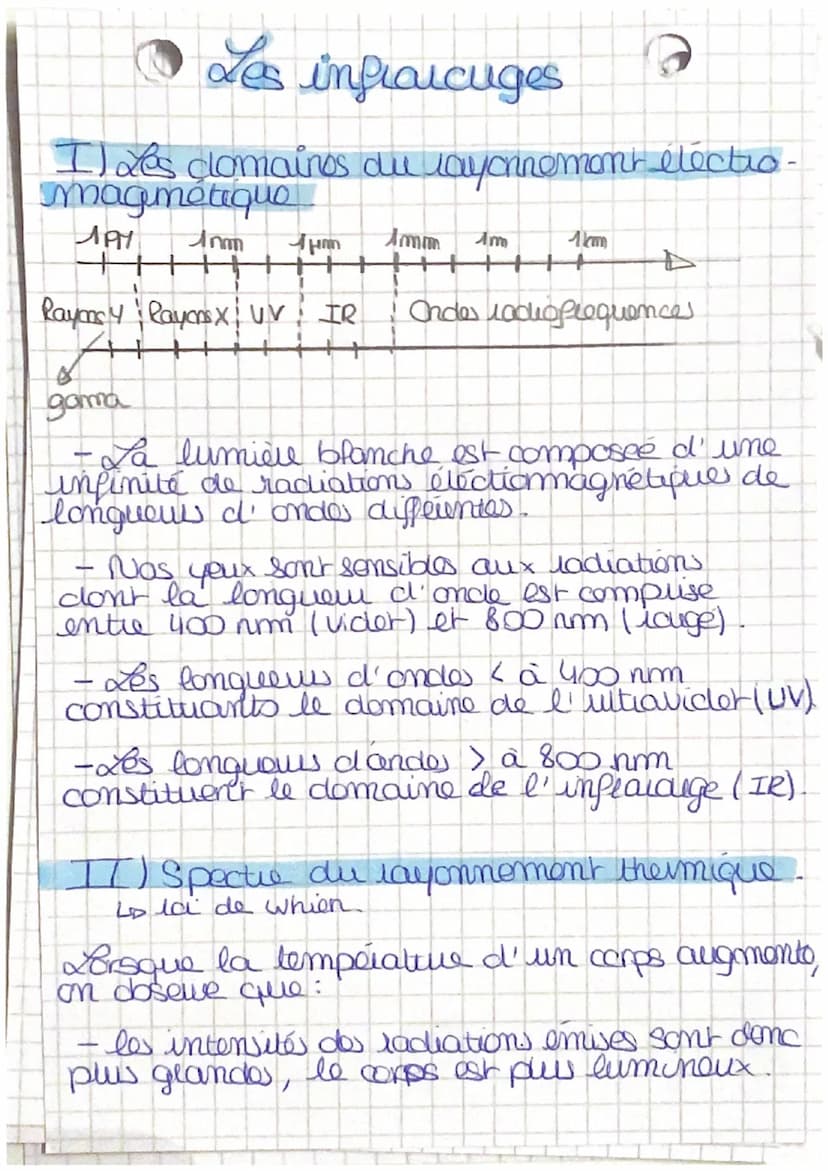 Les infrarouges
I) Les domaines du rayonnement éléctro-
magnétique
1pm 1nm 1μm 1mm 1m 1km
Rayons γ Rayons X UV IR Ondes radiofréquences
gama
- La lumière blanche est composée d'une
infinité de radiations éléctromagnétiques de
longueurs d'ondes différentes.
- Nos yeux sont sensibles aux radiations
dont la longueur d'onde est comprise
entre 400 nm (violet) et 800 nm (rouge).
- Les longueurs d'ondes < à 400 nm
constituants le domaine de l'ultraviolet (UV)
- Les longueurs d'ondes > à 800 nm
constituent le domaine de l'infrarouge (IR).
II) Spectre du rayonnement thermique.
↳ loi de whien
Lorsque la température d'un corps augmente,
on observe que:
- les intensités des radiations émises sont donc
plus grandes, le corps est plus lumineux.